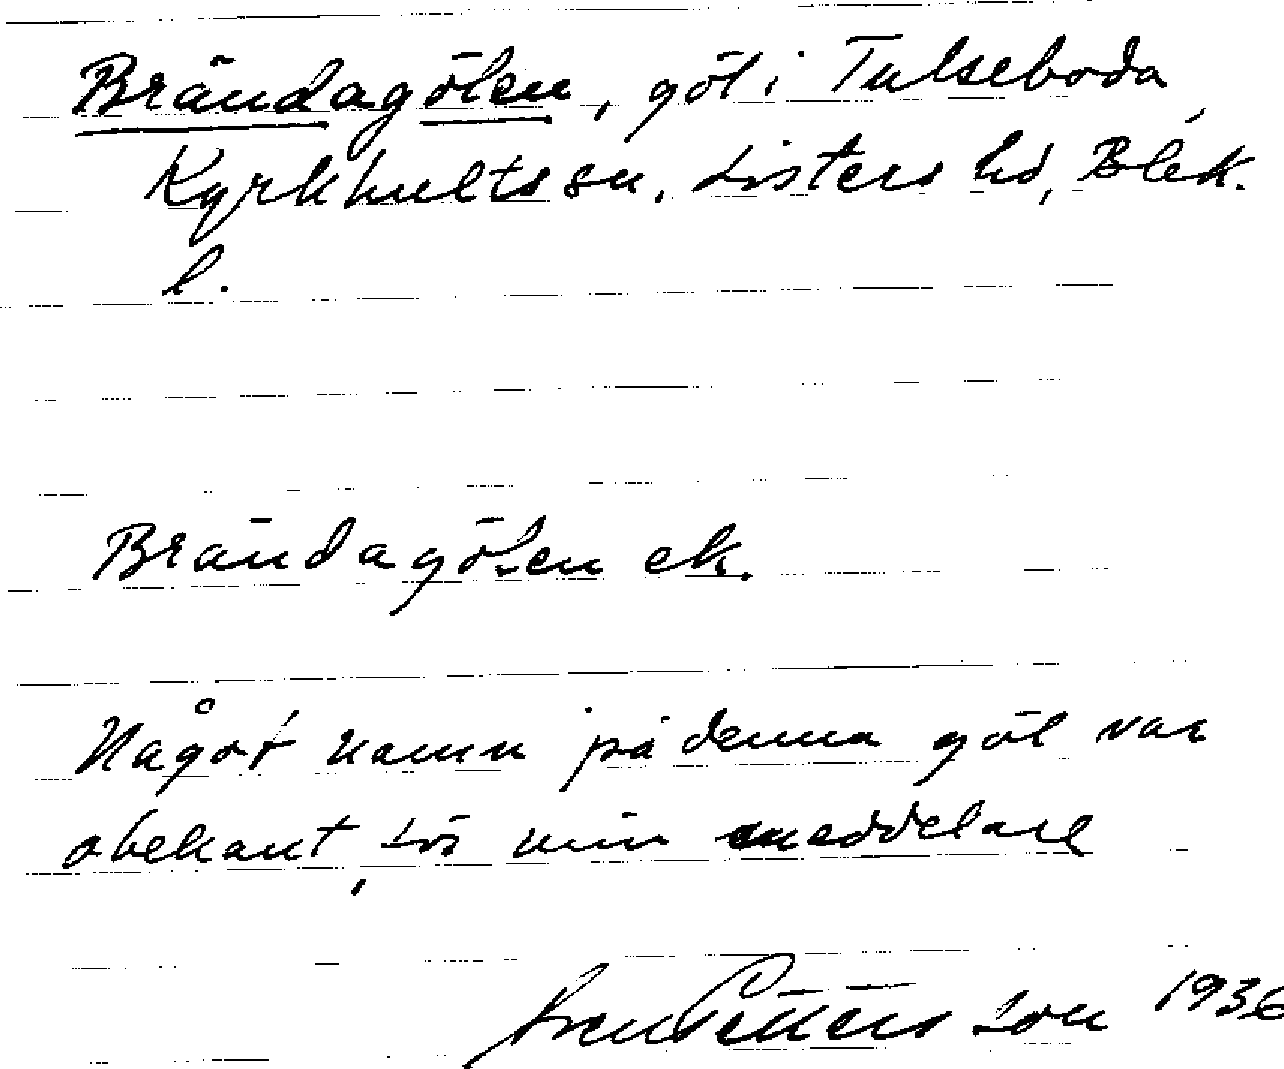 Brändagölen, göl i Tulseboda
Kyrkhults sn, Listers hd, Blek.
l.
Brändagölen ek.
Något namn på denna göl var
obekant, för min meddelare
Sven Petterson 1936